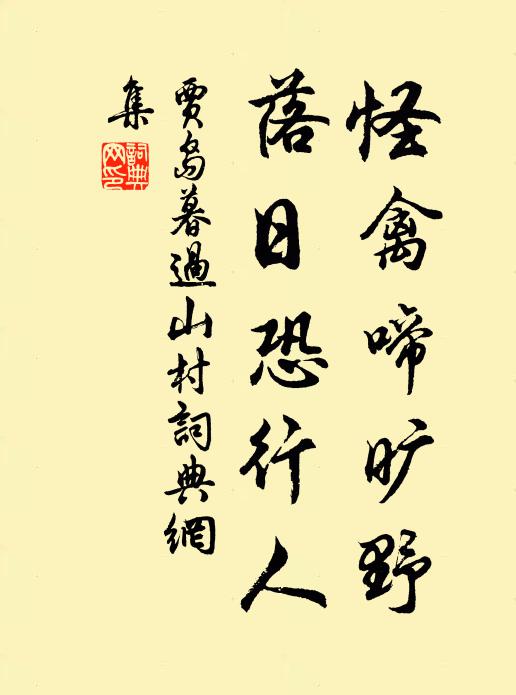 怪禽啼旷野
落日恐行人
賈島暮過山村詞典網
集
詞典
网印